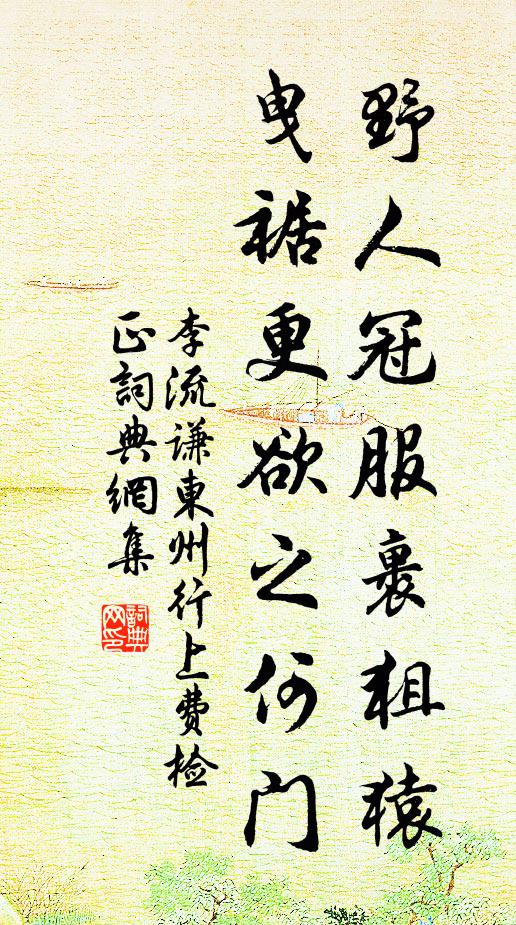 野人冠服裹狙猿
曳裾更欲之何门
李流谦東州行上费检
正詞典網集
詞典网印